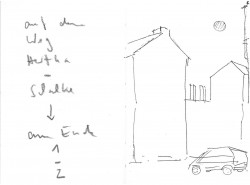 auf dem
Weg
Hertha
-
↓
am Ende
1
-
2